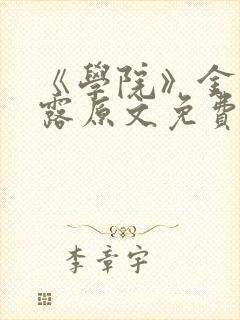 《學院》金
露原文免費
李章宇